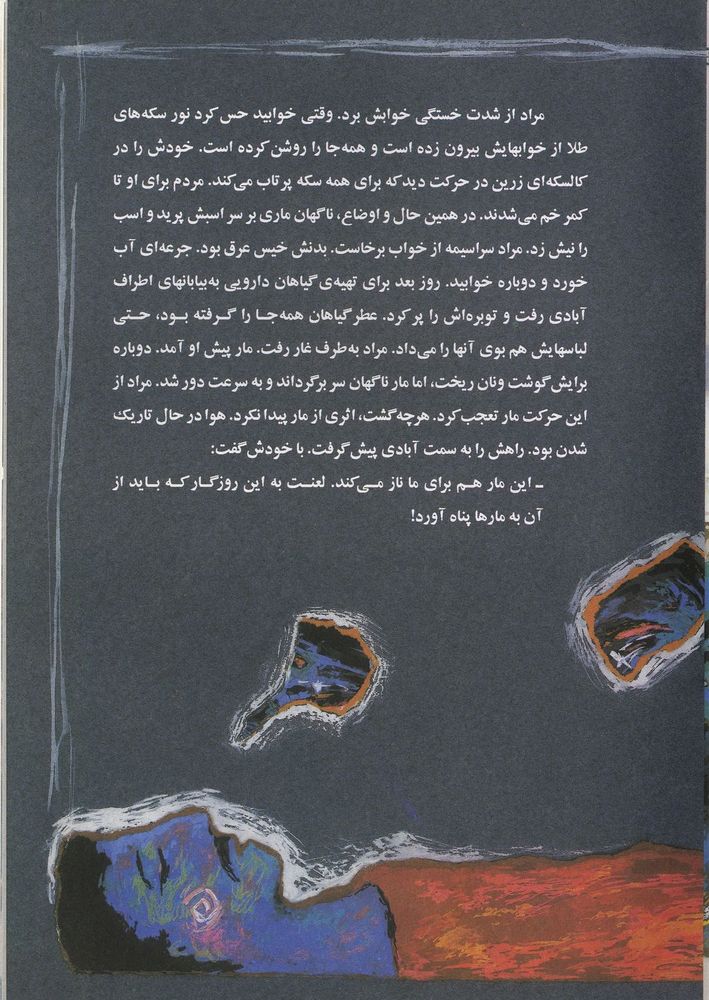 مراد از شدت خستگی خوابش برد. وقتی خوابید حس کرد نور سکه‌های
طلا از خوابهایش بیرون زده است و همه‌جا را روشن کرده است. خودش را در
کالسکه‌ای زرین در حرکت دید که برای همه سکه پرتاب می‌کند. مردم برای او تا
کمر خم می‌شدند. در همین حال و اوضاع، ناگهان ماری بر سر اسبش پرید و اسب
را نیش زد. مراد سراسیمه از خواب برخاست. بدنش خیس عرق بود. جرعه‌ای آب
خورد و دوباره خوابید. روز بعد برای تهیه‌ی گیاهان دارویی به‌بیابانهای اطراف
آبادی رفت و توبره‌اش را پر کرد. عطر گیاهان همه‌جا را گرفته بود، حتی
لباسهایش هم بوی آنها را می‌داد. مراد به‌طرف غار رفت. مار پیش او آمد. دوباره
برایش گوشت ونان ریخت، اما مار ناگهان سر برگرداند و به سرعت دور شد. مراد از
این حرکت مار تعجب کرد. هرچه گشت، اثری از مار پیدا نکرد. هوا در حال تاریک
شدن بود. راهش را به سمت آبادی پیش گرفت. با خودش گفت:
ـ این مار هم برای ما ناز می‌کند. لعنت به این روزگار که باید از
آن به مارها پناه آورد!